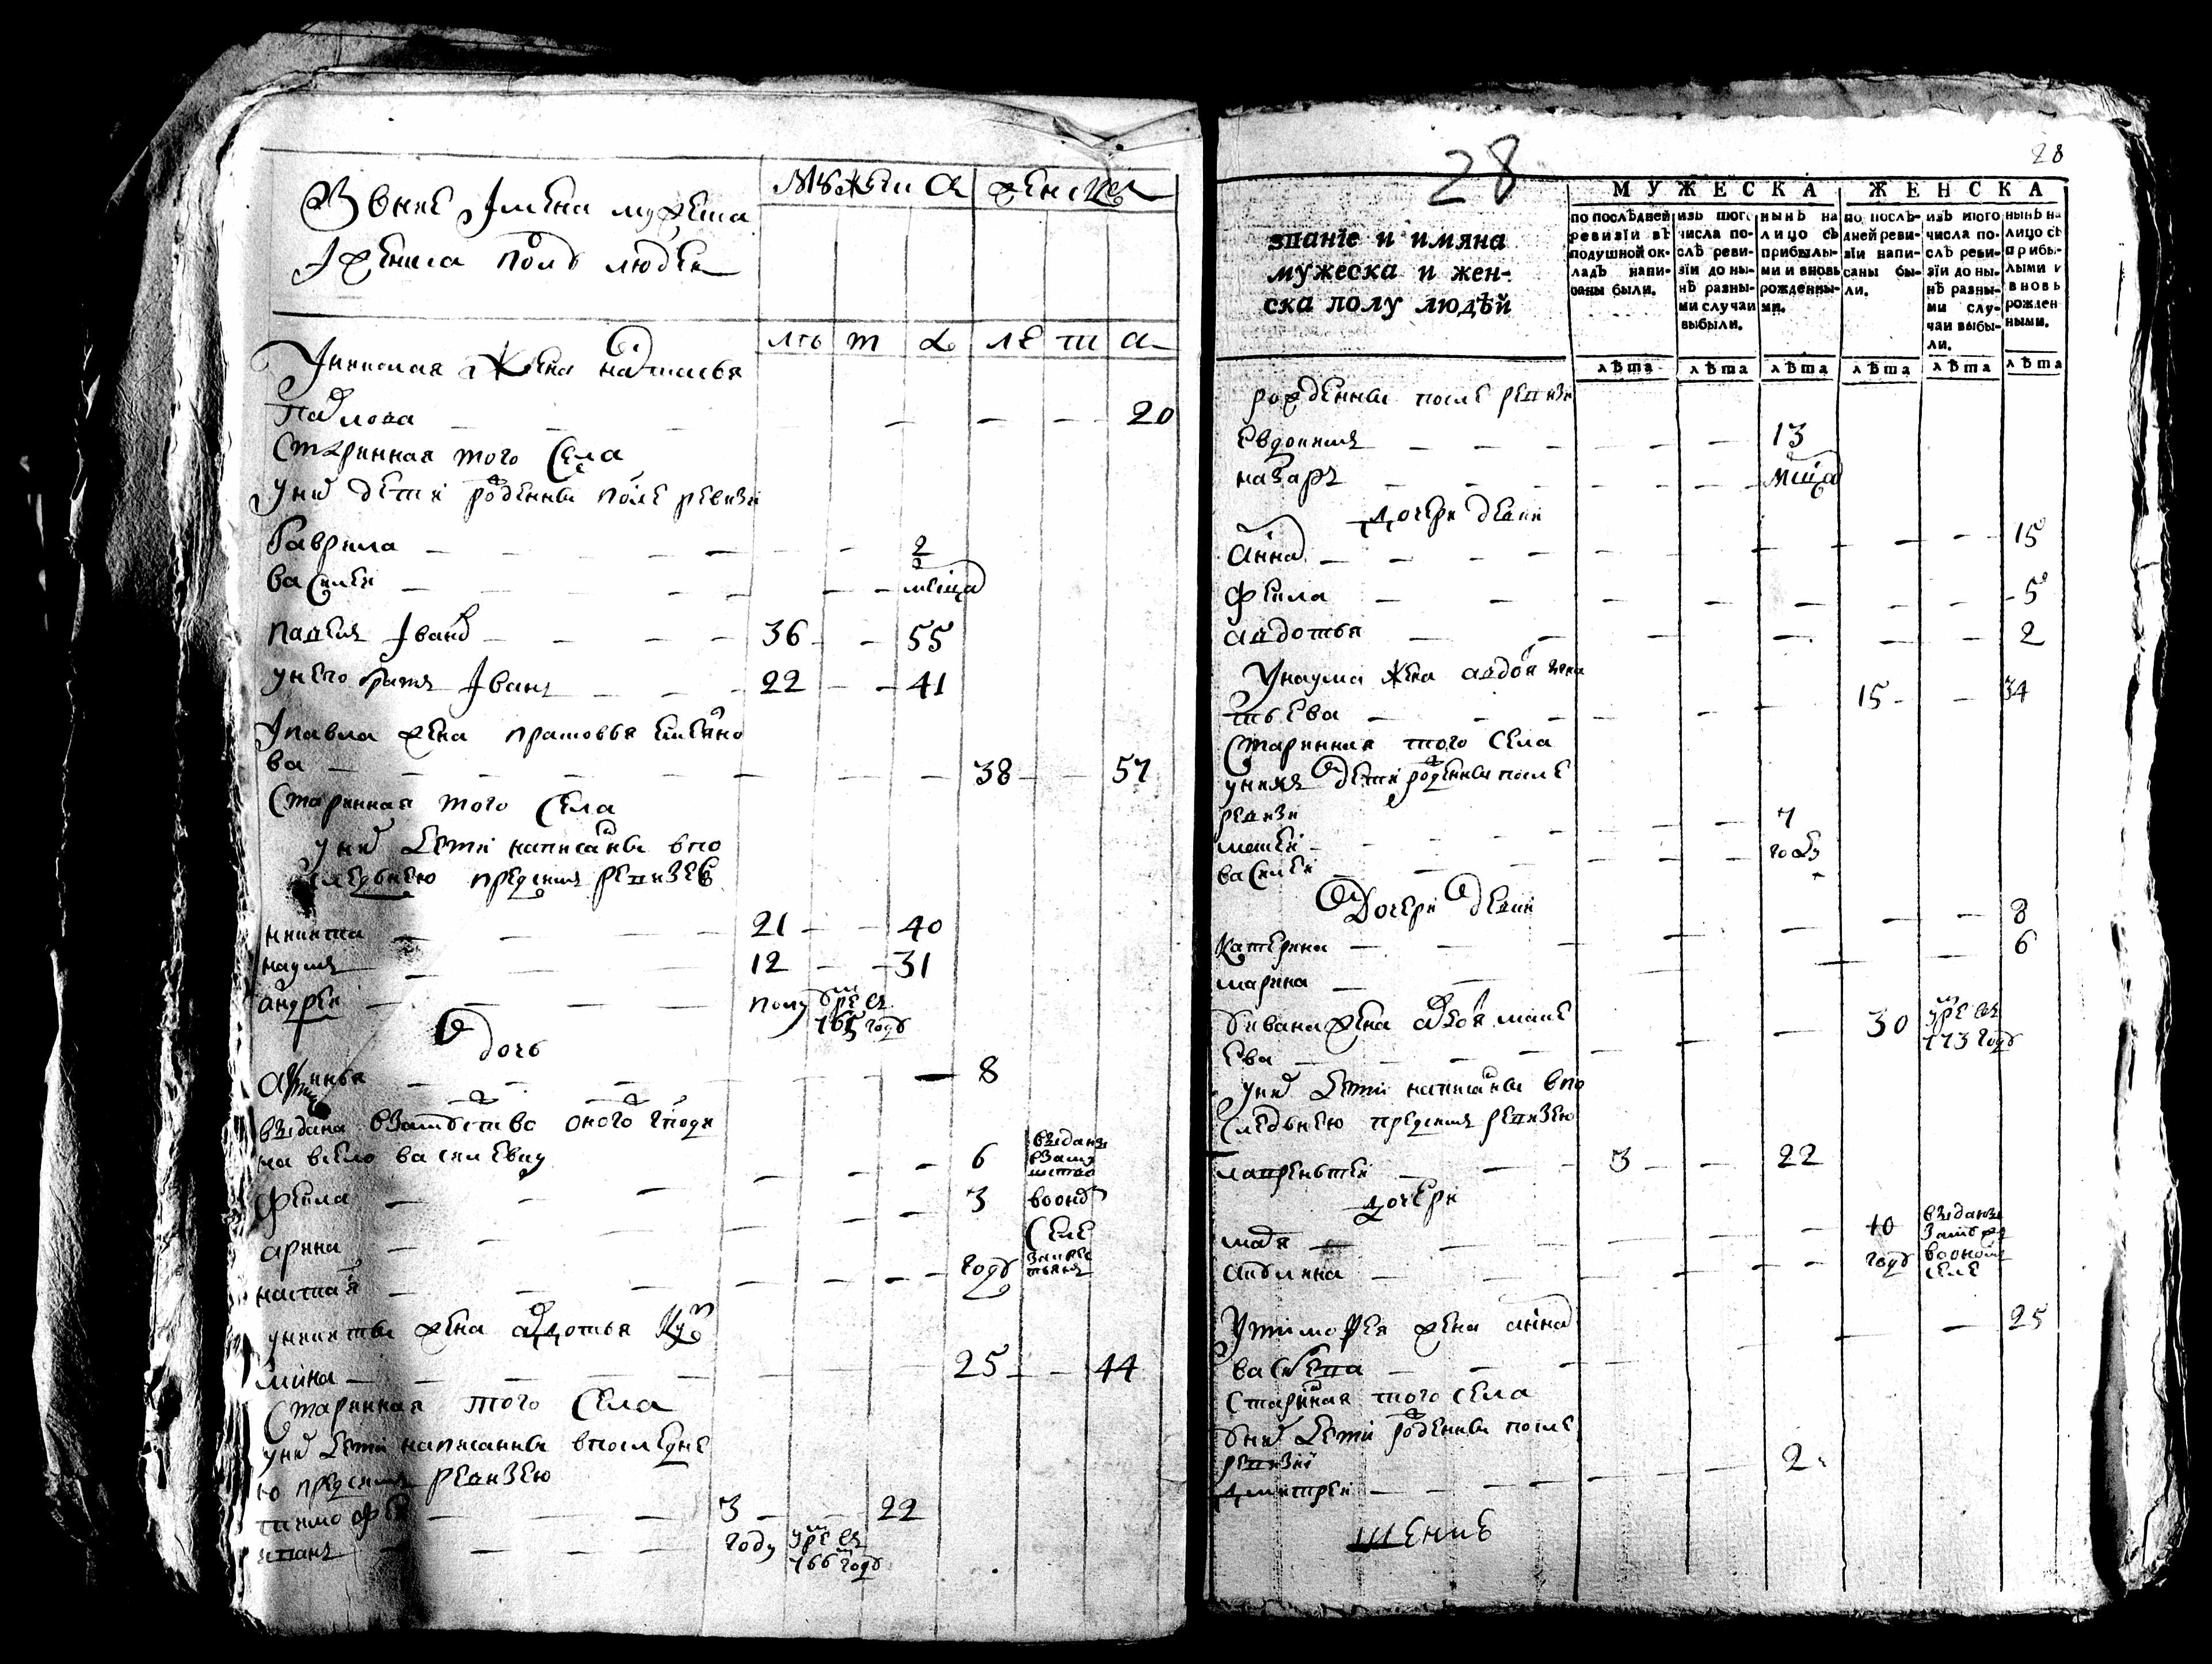 Звние Імена мужеска
Іженска полъ людеи
мужеска женска
лѣ т а ле т а
Уникиѳая жена наталья
Павлова — — — — — 20
Старинная того Села
Унихъ дети рожденны после ревизи
Гаврила — — — 2
василеи — — — месяца
павелъ Івановъ — — 36 — — 55
унего братъ Іванъ — — 22 — — 41
Упавла жена прасковья
ва — — — 38 — — 57
Старинная того Села
унихъ дети написанны впо
следьнею пред симъ ревизею
никита — — — 21 — — 40
наумъ — — — 12 — — 31
андреи — — — полу умре въ
765 годъ
дочь
— — — 8
выдана взамужство оного господи
на въсело василевку
— — 6 выданы
взаму
жство
фекла — — — 3 вооном
Селе
арина — — —
настасья — — — годъ закре
стьянъ
уникиты жена авдотья Куз
мина — — — 25 — — 44
Старинная того Села
унихъ дети написанны впоследне
ю пред симъ ревизею
тимофеи — — — 3 — — 22
степанъ — — — году умре въ
766 годъ
28
28
званіе и имяна
мужеска и жен-
ска полу людѣй
МУЖЕСКА ЖЕНСКА
по послѣдней ревизіи въ подушной ок-ладъ напи-саны были.
изъ того числа по-слѣ реви-зіи до ны-нѣ разны-ми случаи выбыли.
нынѣ на лицо съ прибылы-ми и вновь рожденны-ми.
по послѣ-дней реви-зіи напи-саны бы-ли.
изъ того числа по-слѣ реви-зіи до ны-нѣ разны-ми слу-чаи выбы-ли.
нынѣ на лицо съ прибы-лыми и вновь рожден ными.
лѣта лѣта лѣта лѣта лѣта лѣта
рожденны после ревизи
Евдокимъ — — — 13
назаръ — — — месяца
дочери девки
анна — — — 15
фекла — — — 5
авдотья — — — 2
Унаума жена авдотья
тьева — — — 15 — — 34
Старинная того села
унихъ дети рожденны после
ревизи
матвеи — — — 7
василеи — — — году
Дочери девки
Катерина — — — 8
марина — — — 6
Уивана жена авдотья матве
ева — — — 30 умре въ
773 годъ
унихъ дети написанны впо
следьнею пред симъ ревизею
лаврентеи — — — 3 — — 22
дочери
марья — — — 10 выданы
замужъ
— — — годъ вооном
селе
Утимофея жена анна
васильева — — — 25
Старинная того села
Унихъ дети рожденны после
ревизии
дмитреи — — — 2
щение